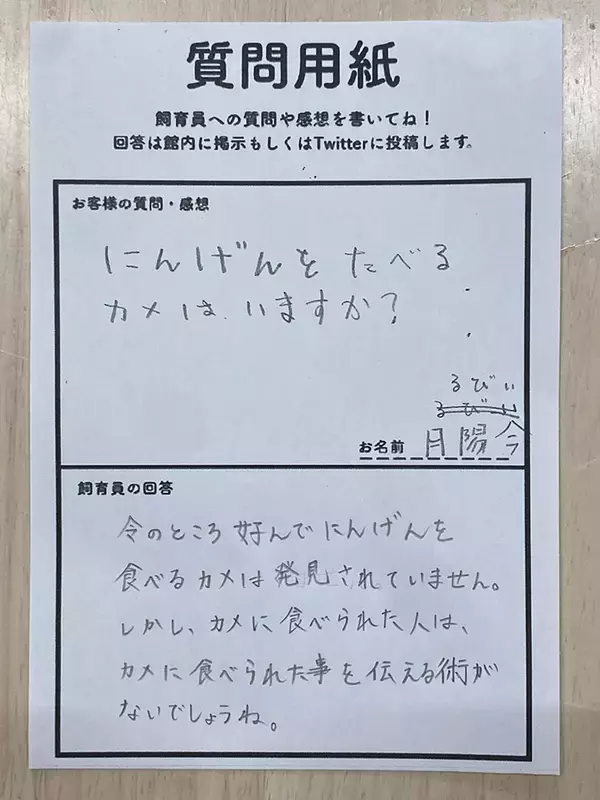 質問用紙
飼育員への質問や感想を書いてね！
回答は館内に掲示もしくはTwitterに投稿します。
お客様の質問・感想
にんげんを たべる
カメは いますか？
るびい
るびい
お名前 月陽今
飼育員の回答
今のところ 好んで にんげんを
食べる カメは 発見されていません。
しかし、カメに 食べられた 人は、
カメに 食べられた事を 伝える術が
ないでしょうね。